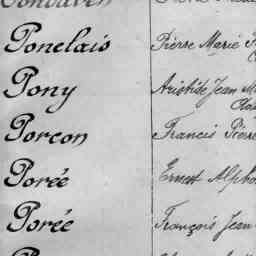 Ponclais Pierre Marie
Pony Aristide Jean
Porcon Francis Pierre
Porée Ernest Alpho
Porée François Jean